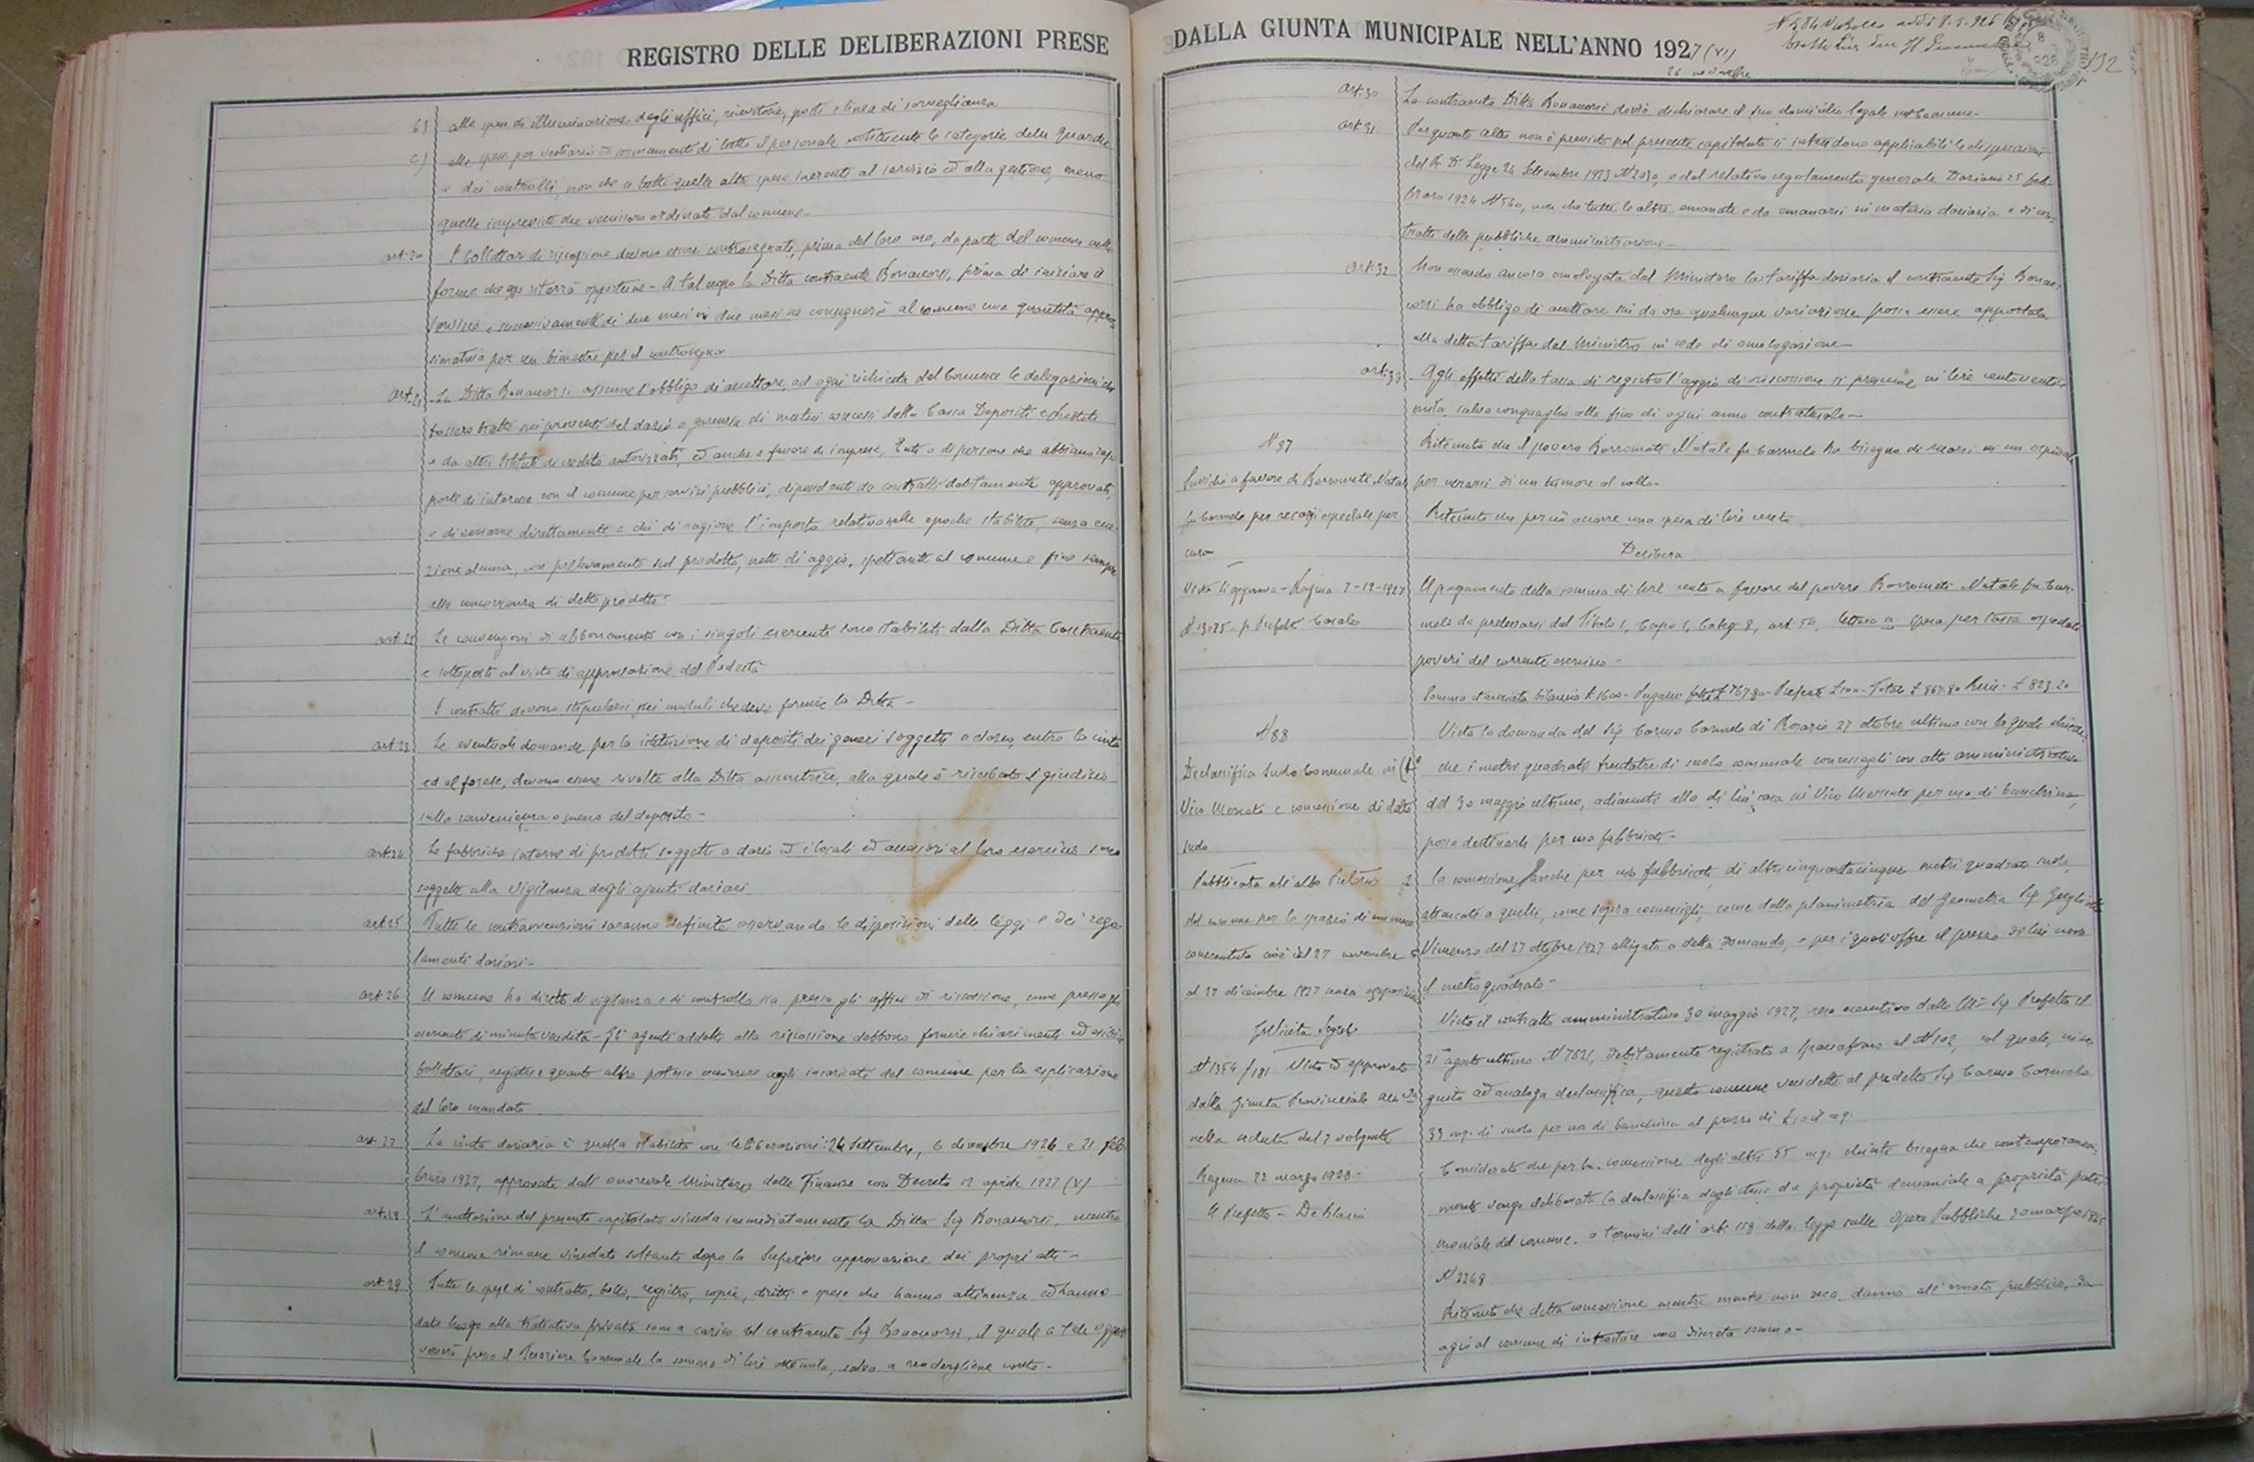 REGISTRO DELLE DELIBERAZIONI PRESE
b) alle spese di illuminazione degli uffici, ricevitorie, posti e linea di sorveglianza
c) alle spese per vestiario ed armamenti di tutto il personale le categorie delle guardie
e dei controlli, non che a tutte quelle altre spese inerenti al servizio ed alla gestione, meno
quelle impreviste che venissero ordinate dal comune.
art. 20 I bollettari di riscossione devono essere contrassegnati, prima del loro uso, da parte del comune nelle
forme che esso riterrà opportune - A tal uopo la Ditta contraente Bonaccorsi, prima di iniziare il
servizio e successivamente di due mesi in due mesi ne consegnerà al comune una quantità appros
simativa per un bimestre pel contrassegno
art. 21 La Ditta Bonaccorsi assume l'obbligo di accettare, ad ogni richiesta del Comune le delegazioni che
fossero tratte sui proventi del dazio a garenzia di mutui concessi dalla Cassa Depositi e Prestiti
e da altri Istituti di credito autorizzati, ed anche a favore di imprese, Enti o di persone che abbiano rap
porti di interesse con il comune per servizi pubblici, dipendenti da contratti debitamente approvati,
e di versarne direttamente a chi di ragione l'importo relativo nelle epoche stabilite, senza ecce
zione alcuna, con prelevamento sul prodotto, netto di aggio, spettante al comune e fino sempre
alla concorrenza di detto prodotto.
art. 22 Le convenzioni di abbonamento con i singoli esercenti sono stabiliti dalla Ditta Contraente
e sottoposti al visto di approvazione del Podestà
I contratti devono stipularsi nei moduli che deve fornire la Ditta -
art. 23 Le eventuali domande per la istituzione di depositi dei generi soggetti a dazio, entro la cinta
ed al forese, devono essere rivolte alla Ditta assuntrice, alla quale è riservato il giudizio
sulla convenienza o meno del deposito -
art. 24 Le fabbriche interne di prodotti soggetti a dazio ed i locali ed accessori al loro esercizio sono
soggette alla vigilanza degli agenti daziari.
art. 25 Tutte le contravvenzioni saranno definite osservando le disposizioni delle leggi e dei rego
lamenti daziari -
art. 26 Il comune ha diritto di vigilanza e di controllo sia presso gli uffici di riscossione, come presso gli
esercenti di minuta vendita - Gli agenti addetti alla riscossione debbono fornire chiarimenti ed esibire
bollettari, registri e quanto altro potesse occorrere agli incaricati del comune per la esplicazione
del loro mandato
art. 27 La cinta daziaria è quella stabilita con deliberazioni: 24 Settembre, 6 dicembre 1926 e 21 feb
braio 1927, approvate dall'onorevole Ministero delle Finanze con Decreto 12 aprile 1927 (V)
art. 28 L'accettazione del presente capitolato vincola immediatamente la Ditta Sig Bonaccorsi, mentre
il comune rimane vincolato soltanto dopo la Superiore approvazione dei propri atti -
art. 29 Tutte le spese di contratto, bollo, registro, copie, diritti e spese che hanno attinenza ed hanno
dato luogo alla trattativa privata sono a carico del contraente Sig Bonaccorsi, il quale a tale oggetto
verserà presso il Tesoriere Comunale la somma di lire ottomila, salvo a rendergliene conto -
DALLA GIUNTA MUNICIPALE NELL'ANNO 1927 (VI)
26 novembre
132
art. 30 La contraente Ditta Bonaccorsi dovrà dichiarare il suo domicilio legale nel comune -
art. 31 Per quanto altro non è previsto nel presente capitolato si intendono applicabili le disposizioni
del R. D. Legge 24 Settembre 1923 N 2030, e del relativo regolamento generale Daziario 25 feb-
braio 1924 N 540, non che tutte le altre emanate e da emanarsi in materia daziaria e di con
tratti delle pubbliche amministrazioni -
art. 32 Non essendo ancora omologata dal Ministero la tariffa daziaria il contraente Sig Bonac
corsi ha obbligo di accettare sin da ora qualunque variazione possa essere apportata
alla detta tariffa dal Ministero in sede di omologazione -
art. 33 - Agli effetti della tassa di registro l'aggio di riscossione si presume in lire
mila, salvo conguaglio alla fine di ogni anno contrattuale -
N 87
Sussidio a favore di Borrometi Natale
fu Carmelo per recarsi ospedale per
cura
Visto Si approva - Ragusa 7-12-1927
N 13025 - p. Prefetto
Ritenuto che il povero Borrometi Natale fu Carmelo ha bisogno di recarsi in un ospedale
per curarsi di un tumore al collo -
Ritenuto che per ciò occorre una spesa di lire cento
Delibera
Il pagamento della somma di lire cento a favore del povero Borrometi Natale fu Car-
melo da prelevarsi dal Titolo 1, Capo 1, Categ 8, art. 50, lettera a spesa per tassa ospedale
poveri del corrente esercizio -
Somma stanziata bilancio £ 1600 - Pagam. fatti £ 767.80 - Presente £ 100 - Totale £ 867.80 Rim. £ 823.20
N 88
Declassifica suolo Comunale in
Vico Mercato e concessione di detto
suolo
Pubblicata all'albo Pretorio
del comune per lo spazio di un mese
consecutivo cioè dal 27 novembre
al 27 dicembre 1927 senza opposizioni
N 1354/181 Visto ed approvato
dalla Giunta Provinciale Am.va
nella seduta del 7 volgente
Ragusa 22 marzo 1928 -
Il Prefetto - De Blasio
Vista la domanda del Sig Caruso Carmelo di Rosario 27 ottobre ultimo con la quale chiede
che i metri quadrati trentatre di suolo comunale concessogli con atto amministrativo
del 30 maggio ultimo, adiacenti alla di lui casa in Vico Mercato per uso di banchina,
possa destinarli per uso fabbricati -
la concessione, anche per uso fabbricati, di altri cinquantacinque metri quadrati suolo,
attaccati a quelli, come sopra concessigli, come dalla planimetria del Geometra Sig
Vincenzo del 27 ottobre 1927 alligata a detta domanda, e per i quali offre il prezzo di lire nove
il metro quadrato -
Visto il contratto amministrativo 30 maggio 1927, reso esecutivo dallo Ill. Sig Prefetto il
21 agosto ultimo N 7621, debitamente registrato a Spaccaforno al N 102, col quale, in se
guito ad analoga declassifica, questo comune vendette al predetto Sig Caruso Carmelo
33 mq. di suolo per uso di banchina al prezzo di £ 10 il mq.
Considerato che per la concessione degli altri 55 mq. chiesti bisogna che contemporanea
mente venga deliberata la declassifica degli stessi da proprietà demaniale a proprietà patri
moniale del comune, a termini dell'art. 118 della legge sulle Opere Pubbliche 20 marzo 1865
N 2248
Ritenuto che detta concessione mentre non reca danno all'ornato pubblico, dà
agio al comune di introitare una discreta somma -